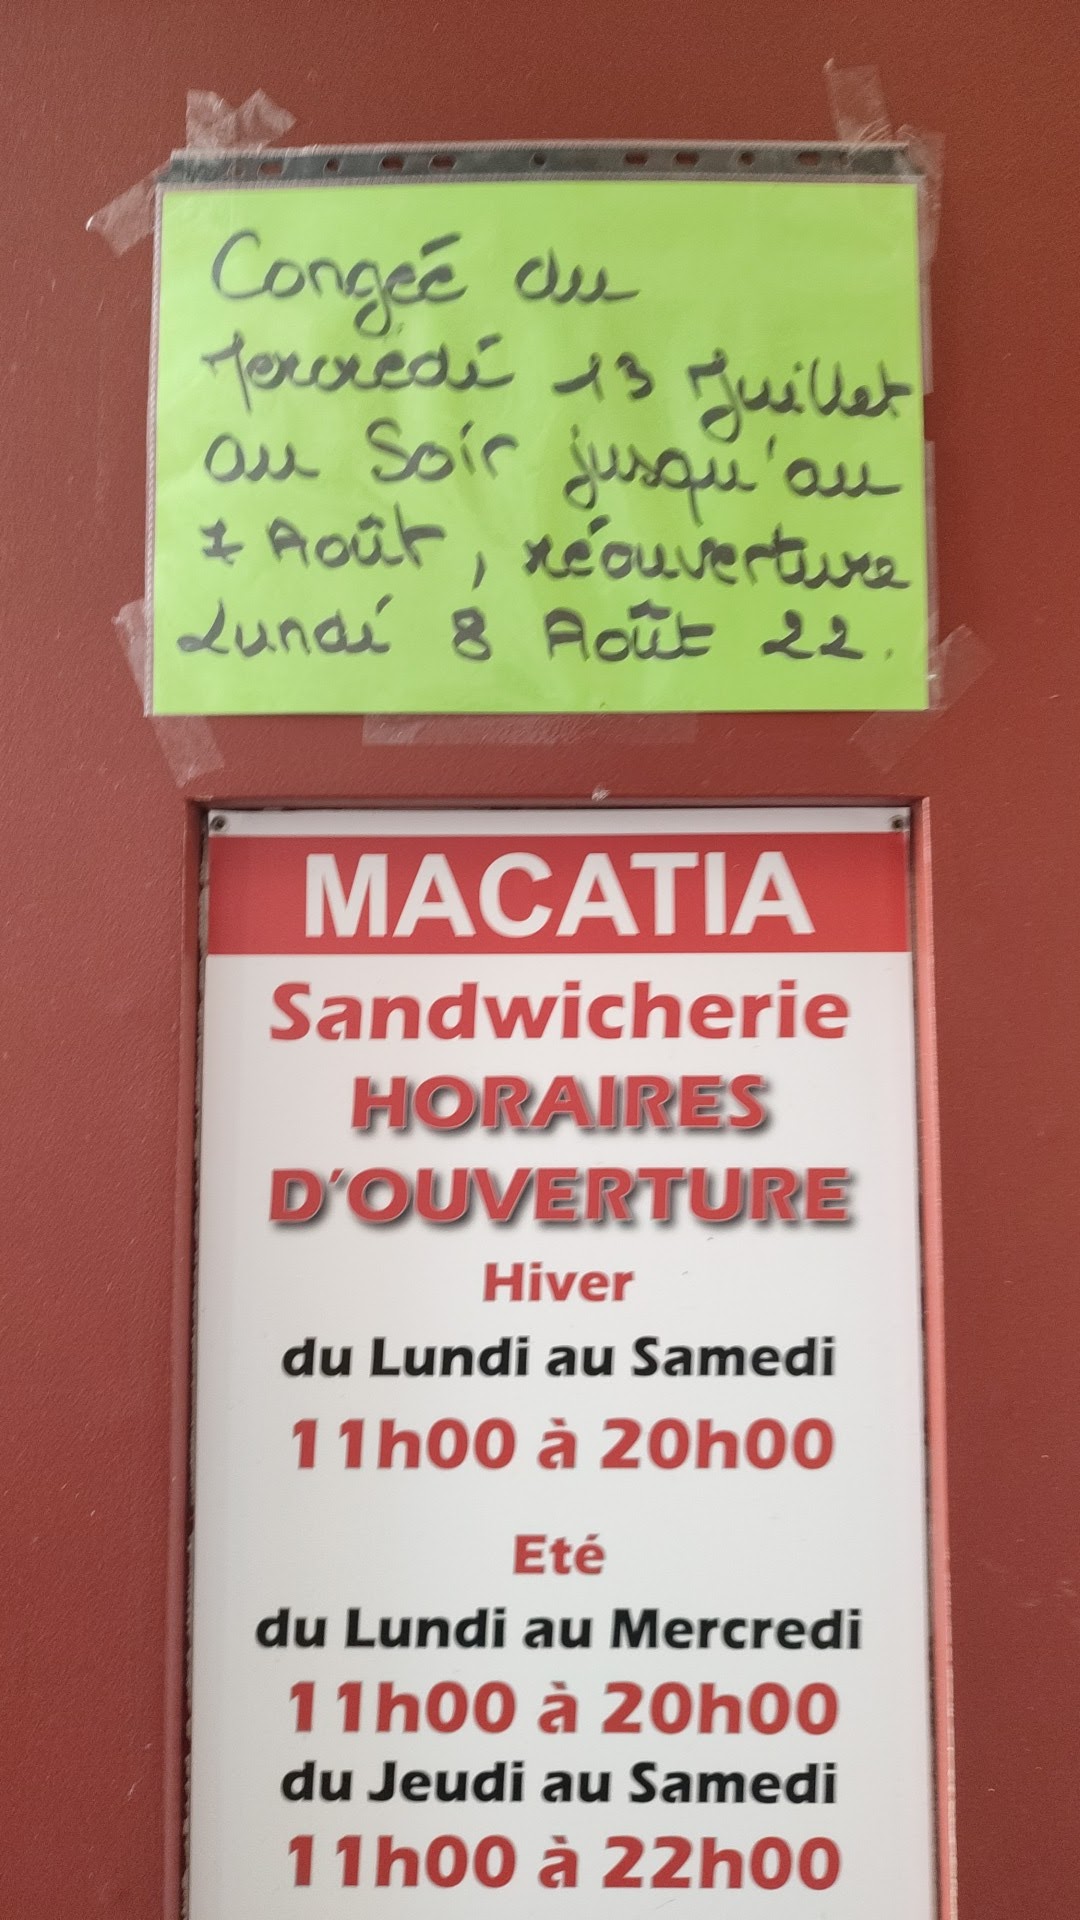 Congéé du
Mercredi 13 Juillet
au Soir jusqu'au
7 Août, réouverture
Lundi 8 Août 22.
MACATIA
Sandwicherie
HORAIRES
D'OUVERTURE
Hiver
du Lundi au Samedi
11h00 à 20h00
Eté
du Lundi au Mercredi
11h00 à 20h00
du Jeudi au Samedi
11h00 à 22h00